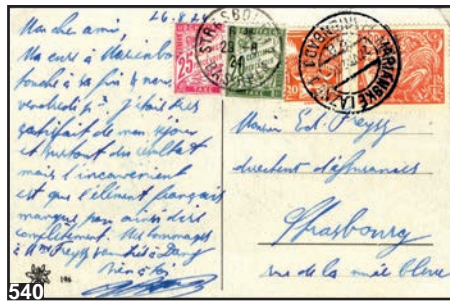 26.8.24
Mon cher ami,
Ma cure à Marienbad
touche à sa fin & nous
vendredi
satisfait de mon séjour
et surtout du résultat
mais l'inconvenient
est que l'élément français
manque pour ainsi dire
complètement. Mes hommages
à Mme Freyss
25
TAXE
STRASBOURG
24
TAXE
20
MARIÁNSKÉ LÁZNĚ
MARIENBAD
Monsieur Ed. Freyss
directeur d'assurances
Strasbourg
rue de la nuée bleue
196
540